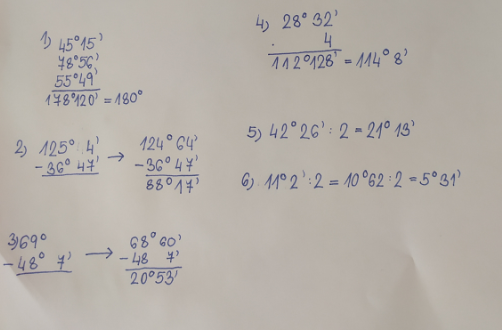 1) 45°15'
78°56'
55°49'
178°120' = 180°
2) 125° 4' → 124° 64'
- 36° 47' - 36° 47'
88° 17'
3) 69° → 68° 60'
- 48° 7' - 48 7'
20° 53'
4) 28° 32'
· 4
112°128' = 114° 8'
5) 42° 26' : 2 = 21° 13'
6) 11° 2' : 2 = 10°62 : 2 = 5° 31'